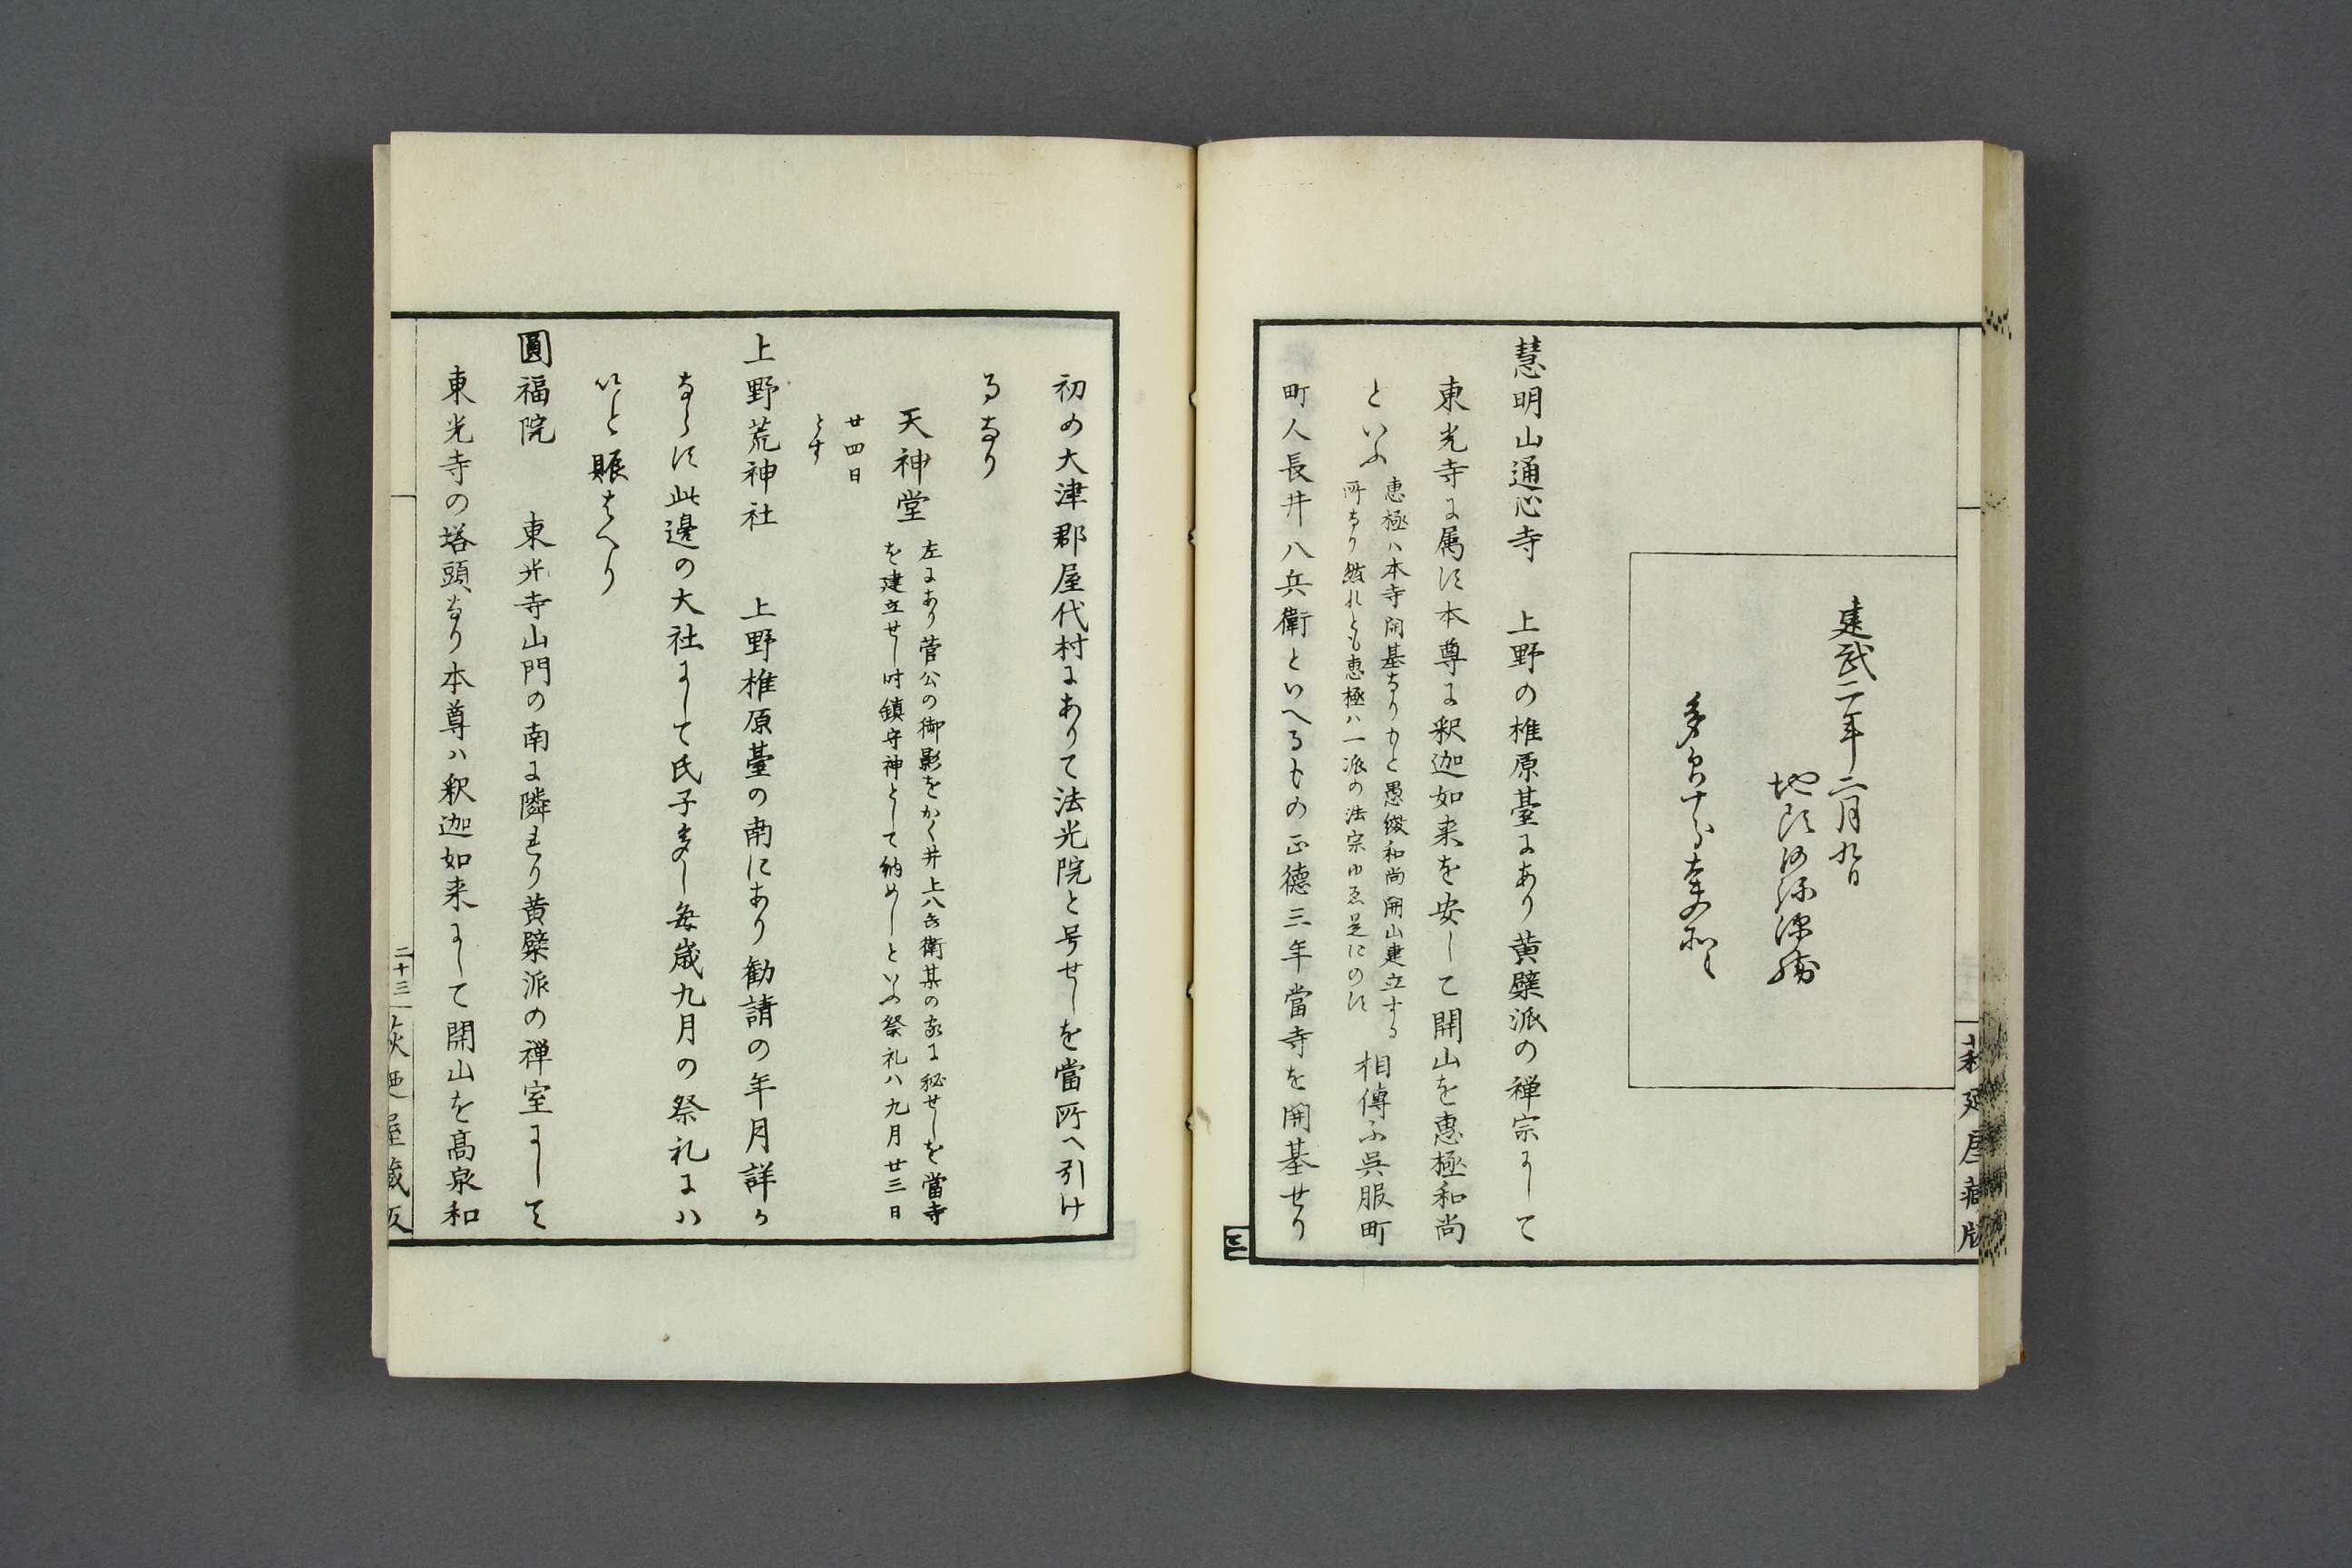 建武二年二月九日
地頭沙弥源
多々良
慧明山通心寺　上野の椎原臺にあり黄檗派の禅宗にして
東光寺に属す本尊に釈迦如来を安して開山を恵極和尚
といふ
恵極ハ本寺開基なりもと愚 和尚開山建立する
所なり然れとも恵極ハ一派の法宗ゆゑ是にのす
相傳ふ呉服町
町人長井八兵衛といへるもの正徳三年當寺を開基せり
萩 屋藏版
初め大津郡屋代村にありて法光院と号せしを當所へ引け
るなり
天神堂
左にあり菅公の御影をかく井上八兵衛某の家に秘せしを當寺
を建立せし时鎮守神として納めしといふ祭礼ハ九月廿三日
廿四日
とす
上野荒神社　上野椎原臺の南にあり勧請の年月詳か
ならす此邊の大社にして氏子多し毎歳九月の祭礼にハ
いと賑はへり
圓福院　東光寺山門の南に隣れり黄檗派の禅室にして
東光寺の塔頭なり本尊ハ釈迦如来にして開山を高泉和
二十三
屋藏